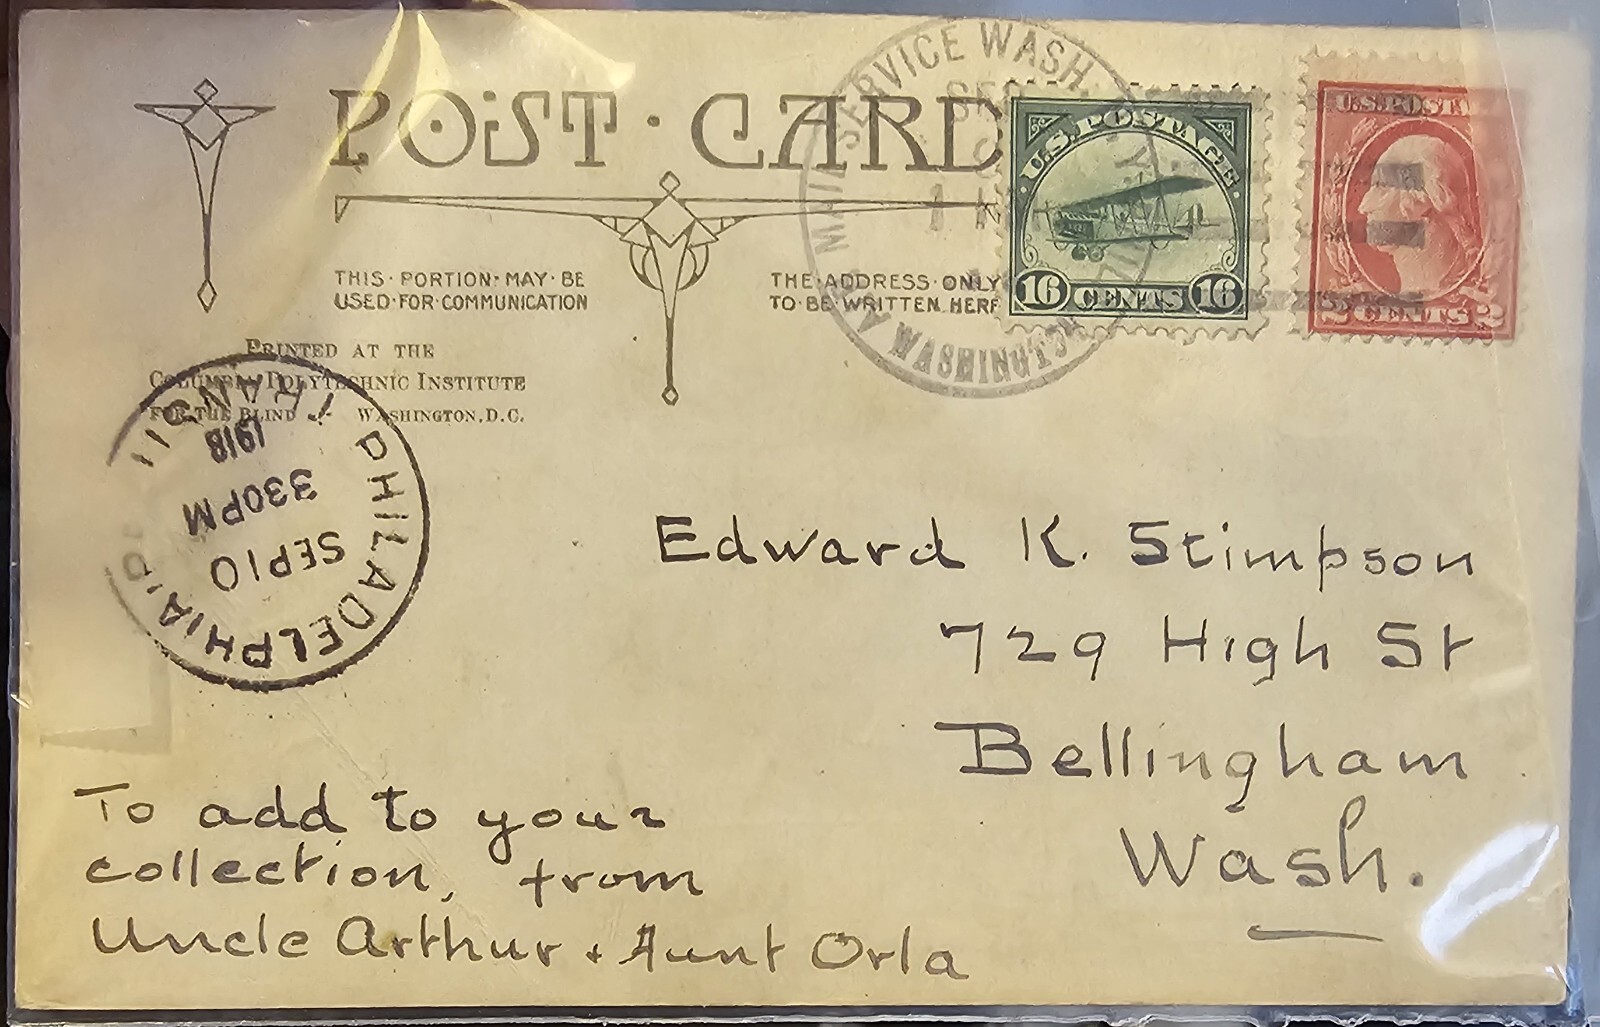 POST · CARD
THIS · PORTION · MAY · BE
USED · FOR · COMMUNICATION
THE · ADDRESS · ONLY
TO · BE · WRITTEN HERE
PRINTED AT THE
COLUMBIA POLYTECHNIC INSTITUTE
FOR THE BLIND WASHINGTON, D.C.
MAIL SERVICE WASH. N.Y.
WASHINGTON
U.S. POSTAGE
16 CENTS 16
U.S. POSTAGE
2 CENTS 2
PHILADELPHIA
TRANSIT
SEP 10
330PM
1918
Edward K. Stimpson
729 High St
Bellingham
Wash.
To add to your
collection, from
Uncle Arthur + Aunt Orla